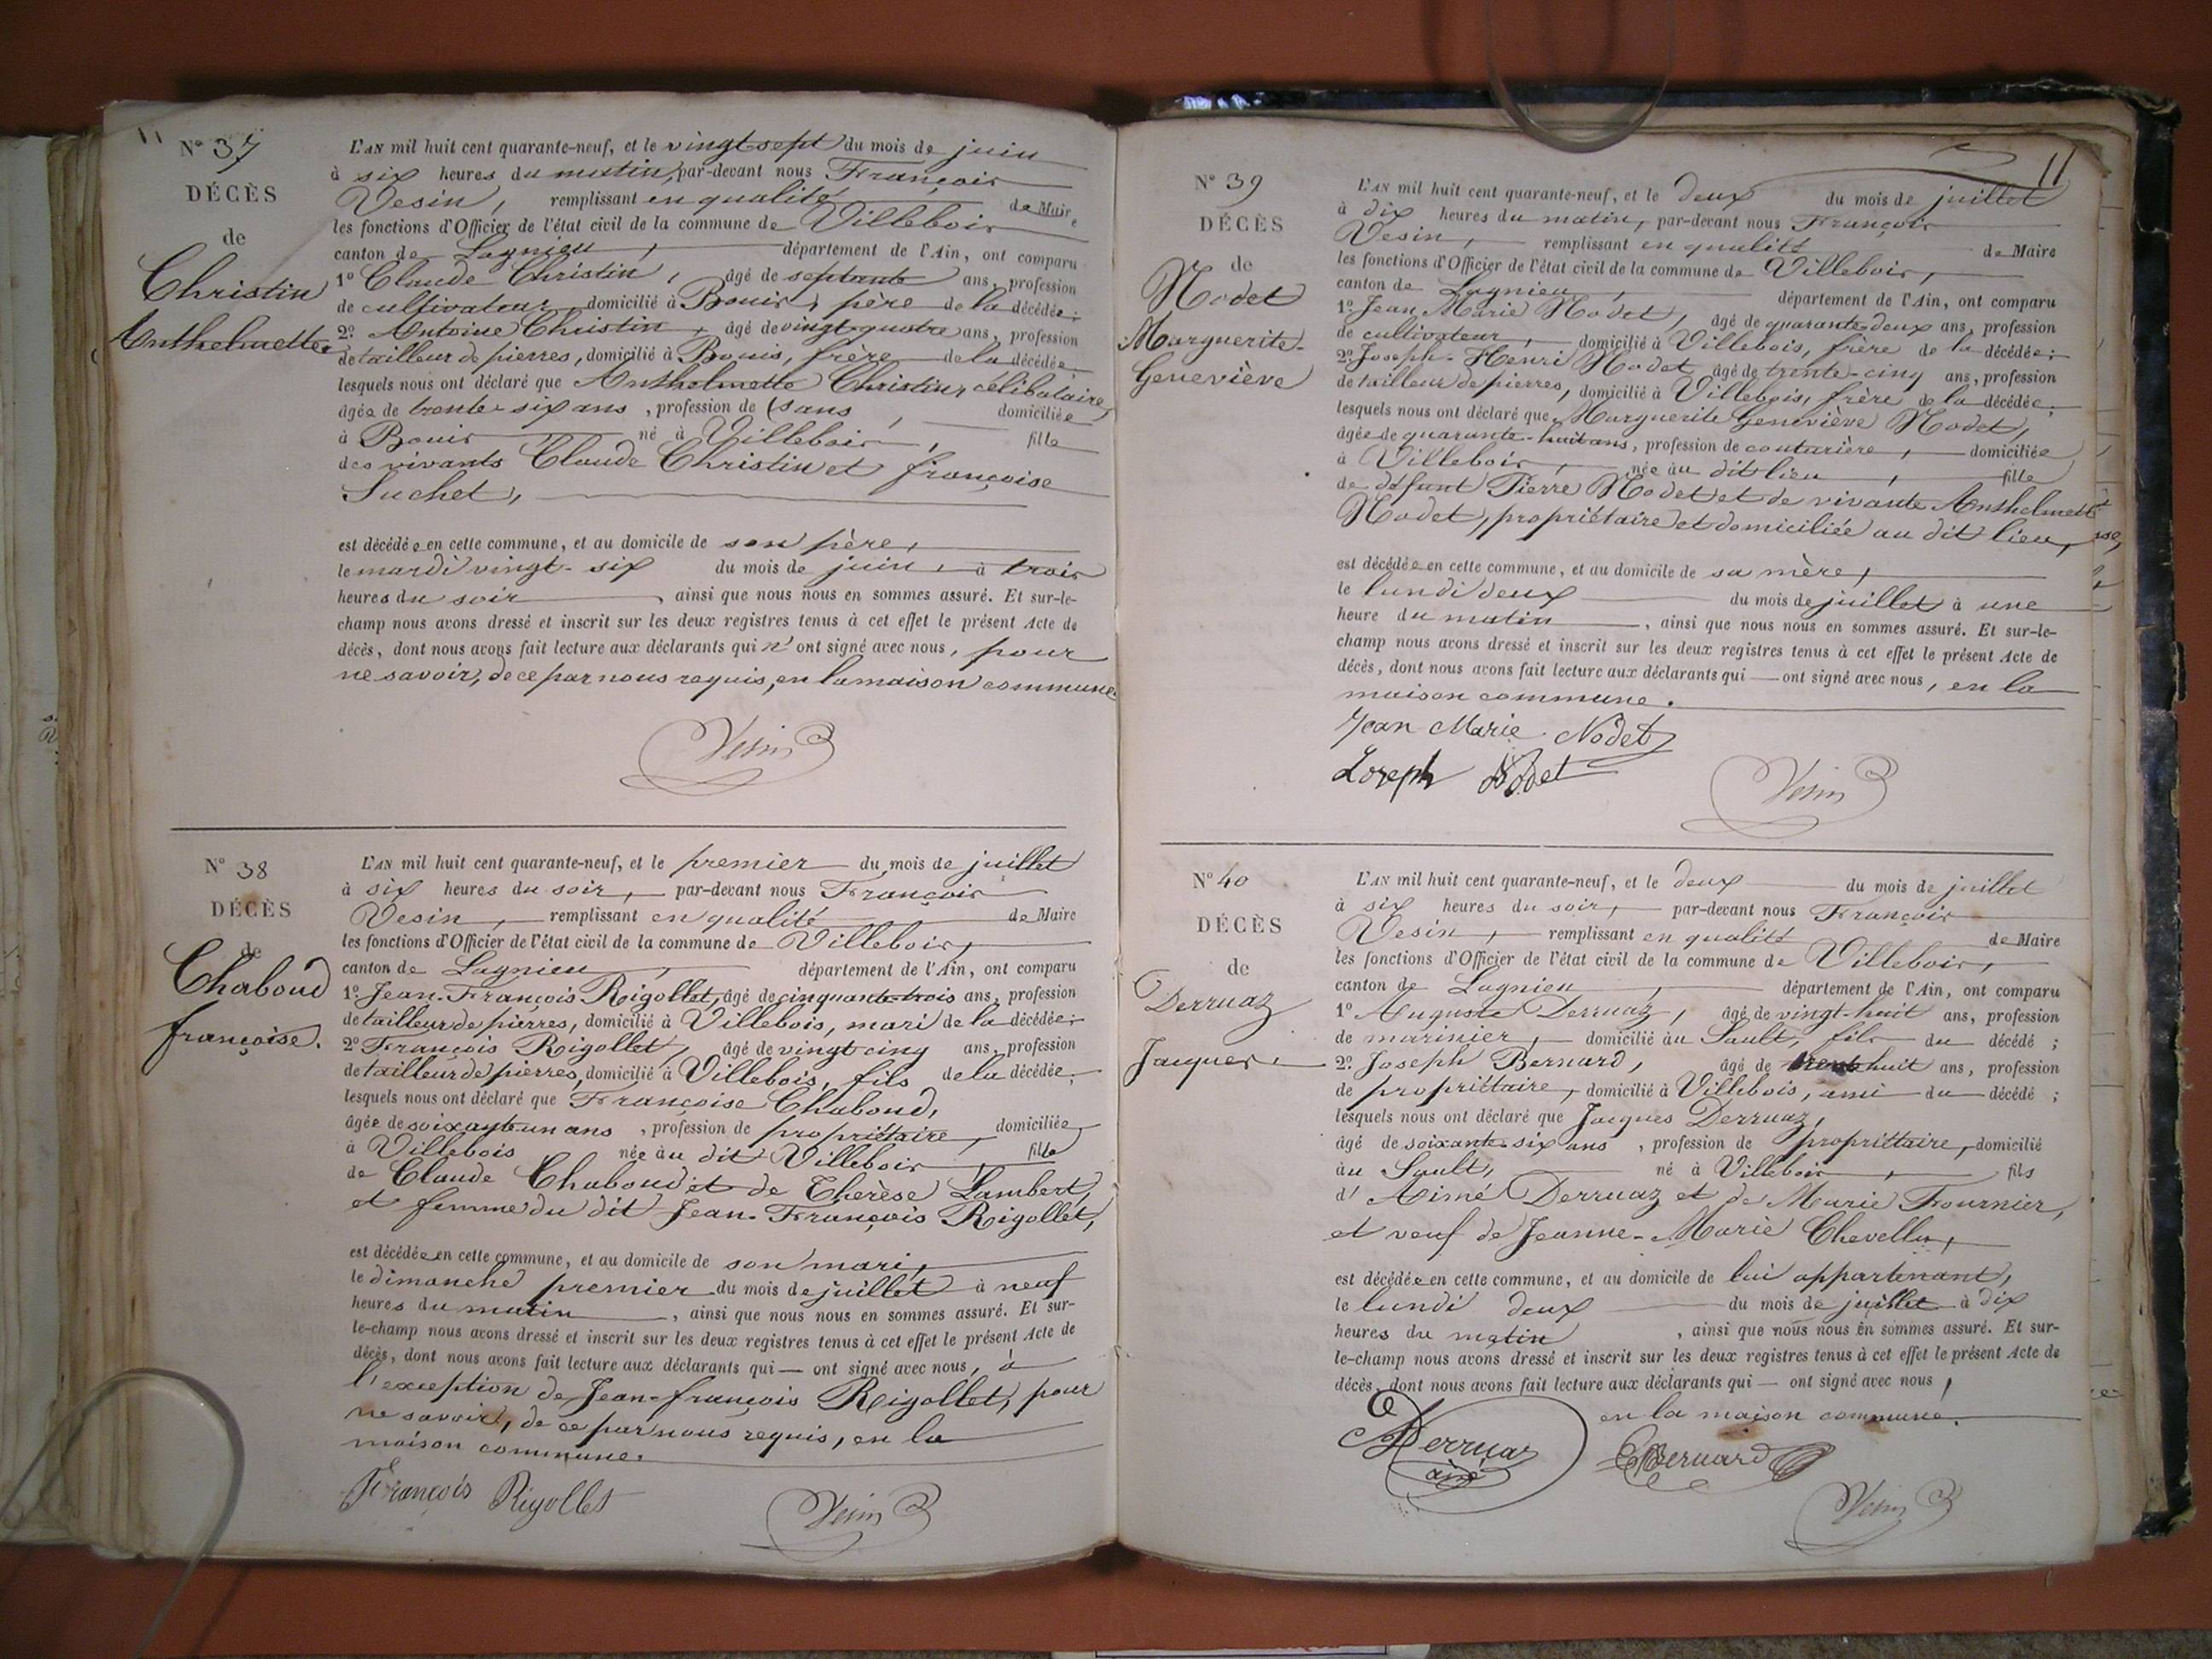 11
Nº 37
DÉCÈS
de
Christin
Anthelmette
L'AN mil huit cent quarante-neuf, et le vingt sept du mois de juin
à six heures du matin, par-devant nous François
Vesin, remplissant en qualité de Maire
les fonctions d'Officier de l'état civil de la commune de Villebois
canton de Lagnieu, département de l'Ain, ont comparu
1º Claude Christin, âgé de septante ans, profession
de cultivateur, domicilié à Bouis, père de la décédée;
2º Antoine Christin, âgé de vingt-quatre ans, profession
de tailleur de pierres, domicilié à Bouis, frère de la décédée;
lesquels nous ont déclaré que Anthelmette Christin, célibataire,
âgée de trente-six ans, profession de sans, domiciliée
à Bouis né à Villebois, fille
des vivants Claude Christin et françoise
Suchet,
est décédée en cette commune, et au domicile de son père,
le mardi vingt-six du mois de juin, à trois
heures du soir, ainsi que nous nous en sommes assuré. Et sur-le-
champ nous avons dressé et inscrit sur les deux registres tenus à cet effet le présent Acte de
décès, dont nous avons fait lecture aux déclarants qui n'ont signé avec nous, pour
ne savoir, de ce par nous requis, en la maison commune
Vesin
Nº 38
DÉCÈS
de
Chaboud
françoise.
L'AN mil huit cent quarante-neuf, et le premier du mois de juillet
à six heures du soir, par-devant nous François
Vesin, remplissant en qualité de Maire
les fonctions d'Officier de l'état civil de la commune de Villebois,
canton de Lagnieu, département de l'Ain, ont comparu
1º Jean-François Rigollet, âgé de cinquante-trois ans, profession
de tailleur de pierres, domicilié à Villebois, mari de la décédée;
2º François Rigollet, âgé de vingt cinq ans, profession
de tailleur de pierres, domicilié à Villebois, fils de la décédée;
lesquels nous ont déclaré que Françoise Chaboud,
âgée de soixante un ans, profession de propriétaire, domiciliée
à Villebois née au dit Villebois, fille
de Claude Chaboud et de Therèse Lambert,
et femme du dit Jean-François Rigollet,
est décédée en cette commune, et au domicile de son mari,
le dimanche premier du mois de juillet à neuf
heures du matin, ainsi que nous nous en sommes assuré. Et sur-
le-champ nous avons dressé et inscrit sur les deux registres tenus à cet effet le présent Acte de
décès, dont nous avons fait lecture aux déclarants qui — ont signé avec nous, à
l'exception de Jean-françois Rigollet, pour
ne savoir, de ce par nous requis, en la
maison commune.
François Rigollet
Vesin
11
Nº 39
DÉCÈS
de
Nodet
Marguerite-
Geneviève
L'AN mil huit cent quarante-neuf, et le deux du mois de juillet
à dix heures du matin, par-devant nous François
Vesin, remplissant en qualité de Maire
les fonctions d'Officier de l'état civil de la commune de Villebois,
canton de Lagnieu, département de l'Ain, ont comparu
1º Jean Marie Nodet, âgé de quarante-deux ans, profession
de cultivateur, domicilié à Villebois, frère de la décédée;
2º Joseph-Henri Nodet âgé de trente-cinq ans, profession
de tailleur de pierres, domicilié à Villebois, frère de la décédée;
lesquels nous ont déclaré que Marguerite Geneviève Nodet,
âgée de quarante-huit ans, profession de couturière, domiciliée
à Villebois, née au dit lieu, fille
de défunt Pierre Nodet et de vivante Anthelmette
Nodet, propriétaire et domiciliée au dit lieu,
est décédée en cette commune, et au domicile de sa mère,
le lundi deux du mois de juillet à une
heure du matin, ainsi que nous nous en sommes assuré. Et sur-le-
champ nous avons dressé et inscrit sur les deux registres tenus à cet effet le présent Acte de
décès, dont nous avons fait lecture aux déclarants qui — ont signé avec nous, en la
maison commune.
Jean Marie Nodet
Joseph Nodet
Vesin
Nº 40
DÉCÈS
de
Derruaz
Jacques
L'AN mil huit cent quarante-neuf, et le deux du mois de juillet
à six heures du soir, par-devant nous François
Vesin, remplissant en qualité de Maire
les fonctions d'Officier de l'état civil de la commune de Villebois,
canton de Lagnieu, département de l'Ain, ont comparu
1º Auguste Derruaz, âgé de vingt-huit ans, profession
de marinier, domicilié au Sault, fils du décédé;
2º Joseph Bernard, âgé de huit ans, profession
de propriétaire, domicilié à Villebois, ami du décédé;
lesquels nous ont déclaré que Jacques Derruaz,
âgé de soixante-six ans, profession de propriétaire, domicilié
au Sault, né à Villebois, fils
d'Aimé Derruaz et de Marie Fournier,
et veuf de Jeanne-Marie
est décédée en cette commune, et au domicile de lui appartenant,
le lundi deux du mois de juillet à dix
heures du matin, ainsi que nous nous en sommes assuré. Et sur-
le-champ nous avons dressé et inscrit sur les deux registres tenus à cet effet le présent Acte de
décès, dont nous avons fait lecture aux déclarants qui — ont signé avec nous,
en la maison commune.
Derruaz
ainé
Bernard
Vesin